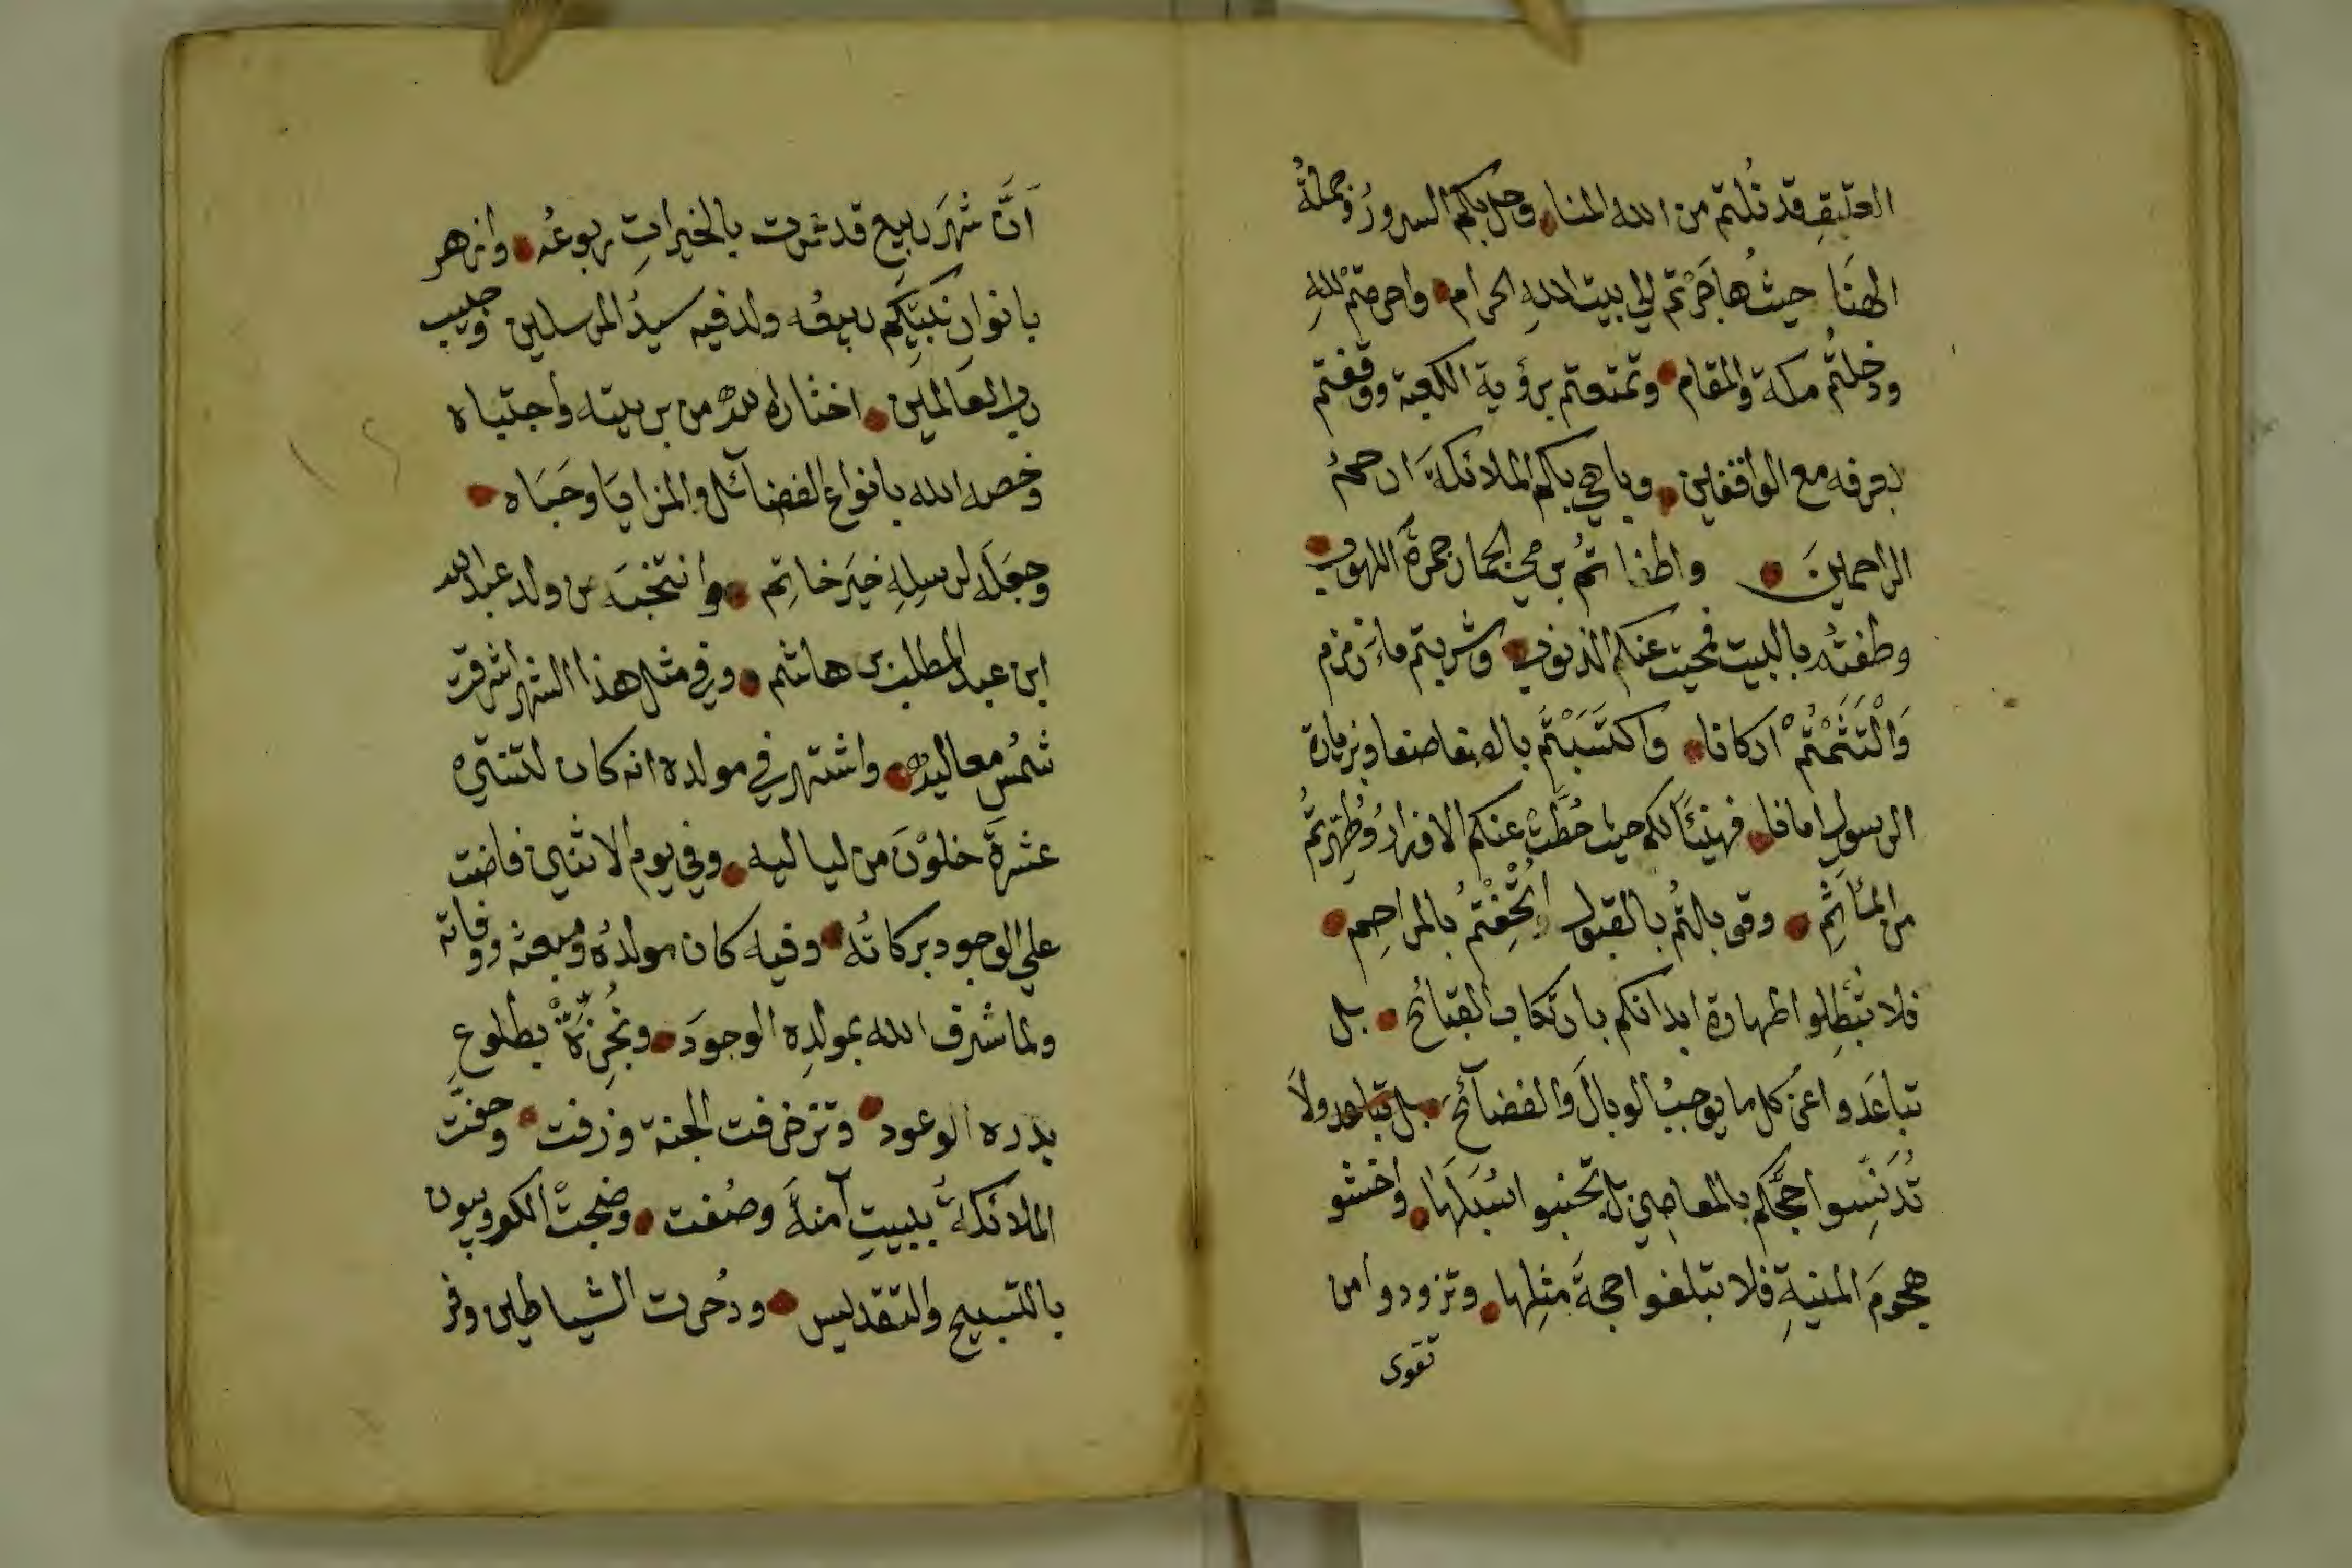 العتيقِ قد نُلتم من الله المنا وحل بكم السرورُ وجملةُ
الهنَا حيثُ هاجَرْتم الي بيت اللهِ الحرام واحرمتم للهِ
ودخلتُم مكة والمقام وتمتعتم برؤية الكعبة ووقفتم
بعرفه مع الواقفين وباهي بكم الملائكةَ ارحمُ
الراحمينَ واطفاتمُ برمي الجمار جمرةَ اللهوب
وطفتُم بالبيت فمحيت عنكم الذنوب وشربتم ماءَ زمزم
وَالْتَثَمْتُمْ اركانا واكتَسَبْتُم بالصفا صفا وبزيارة
الرسولِ امانا فهنيئًا لكم حيث حُطَّتْ عنكم الاوزارُ وطُهِرتُم
من المآثِم وقوبلتُم بالقبول اتْحِفْتمُ بالمراحِم
فلا تُبْطِلوا طهارة ابدانكم بارتكاب القبائح بل
تباعَدوا عن كل ما يوجبُ الوبالَ والفضآئحَ بل تباعدو ولاَ
تُدَنِّسوا حجَّكم بالمعاصي بل تجنبوا سُبُلَها واخشو
هجومَ المنيةِ فلا تبلغوا حجةً مثلِها وتزودوا من
تقوى
اَنَّ شهرَ ربيع قد شرت بالخيراتِ ربوعُه وازهر
بانوارِ نَبيّكِم ربيعُه ولد فيه سيدُ المرسلين وحبيب
رب العَالمينَ اختاره اللهُ من بريته وأجتبَاه
وخصه الله بانواع الفضآئل والمزايَا وحَبَاه
وجعَله لرسلِهِ خيَر خاتِم وانتخبَه من ولد عبد الله
ابن عبد المطلب بن هاشم وفي مثل هذا الشهر اشرقت
شمُس معاليه واشتهر في مولده انه كان لثنتيْ
عشرةَ خلوْنَ من لياليه وفي يوم الاثنين فاضت
علي الوجود بركاتُه وفيه كان مولدُه ومبعثه ووفاته
ولما شرف الله بمولدِه الوجودَ ونُجِزَتْ بطلوعِ
بدره الوعود وتزخرفت الجنة وزفت وحفّت
الملائكةُ ببيتِ آمنةَ وصُفت وضجتْ الكروبيون
بالتسبيح والتقديس ودُحرت الشياطين وفر